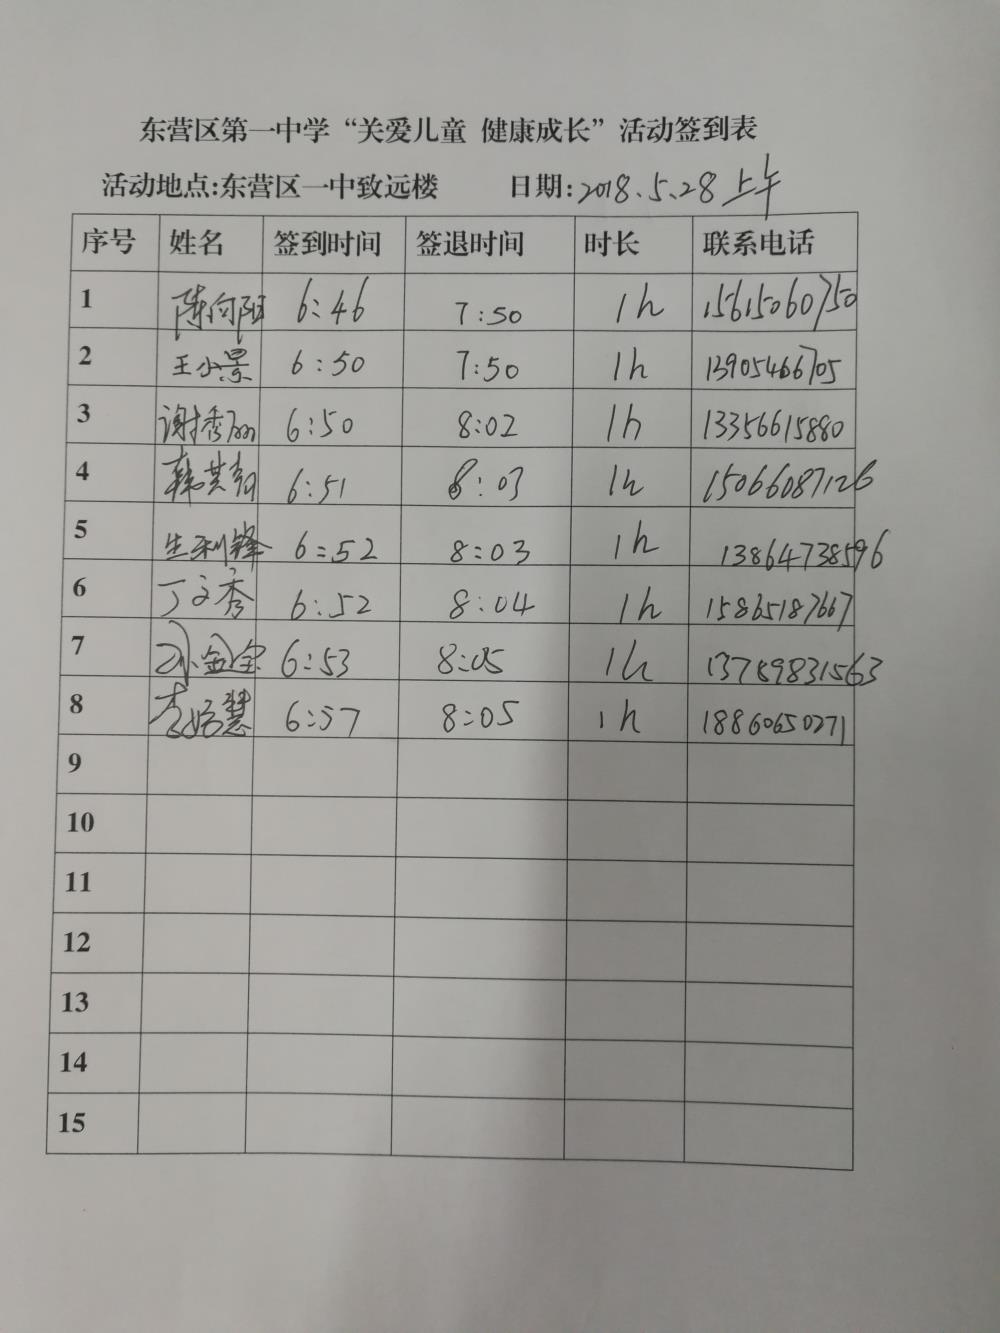 东营区第一中学“关爱儿童 健康成长”活动签到表
活动地点:东营区一中致远楼 日期:2018.5.28上午
序号 姓名 签到时间 签退时间 时长 联系电话
1 陈向阳 6:46 7:50 1h 15615060750
2 王小景 6:50 7:50 1h 13905466705
3 谢秀丽 6:50 8:02 1h 13356615880
4 韩其 6:51 8:03 1h 15066087126
5 生利锋 6:52 8:03 1h 13864738596
6 丁文秀 6:52 8:04 1h 15865187667
7 孙金宝 6:53 8:05 1h 13789831563
8 李婷慧 6:57 8:05 1h 18860650271
9
10
11
12
13
14
15